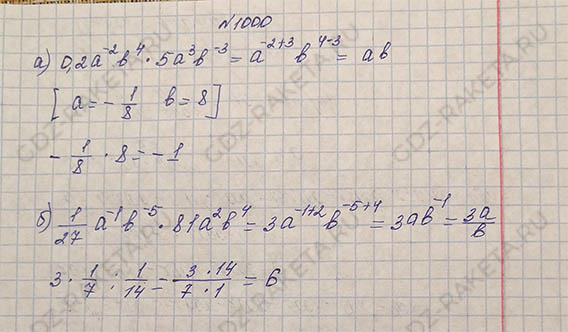 №1000
а) 0,2a⁻²b⁴ · 5a³b⁻³ = a⁻²⁺³ b⁴⁻³ = ab
[ a = - 1/8 b = 8 ]
- 1/8 · 8 = - 1
б) 1/27 a⁻¹b⁻⁵ · 81a²b⁴ = 3a⁻¹⁺²b⁻⁵⁺⁴ = 3ab⁻¹ = 3a/b
3 · 1/7 : 1/14 = 3 · 14/7 · 1 = 6
GDZ-RAKETA.RU
GDZ-RAKETA.RU
GDZ-RAKETA.RU
GDZ-RAKETA.RU